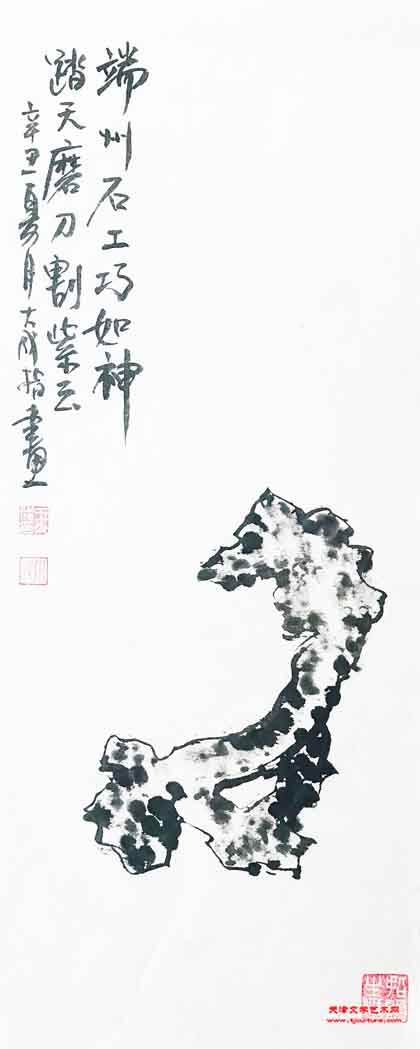 端州石工巧如神
踏天磨刀割紫云
辛丑夏月大成指画
天津文学艺术网
www.tjculture.com